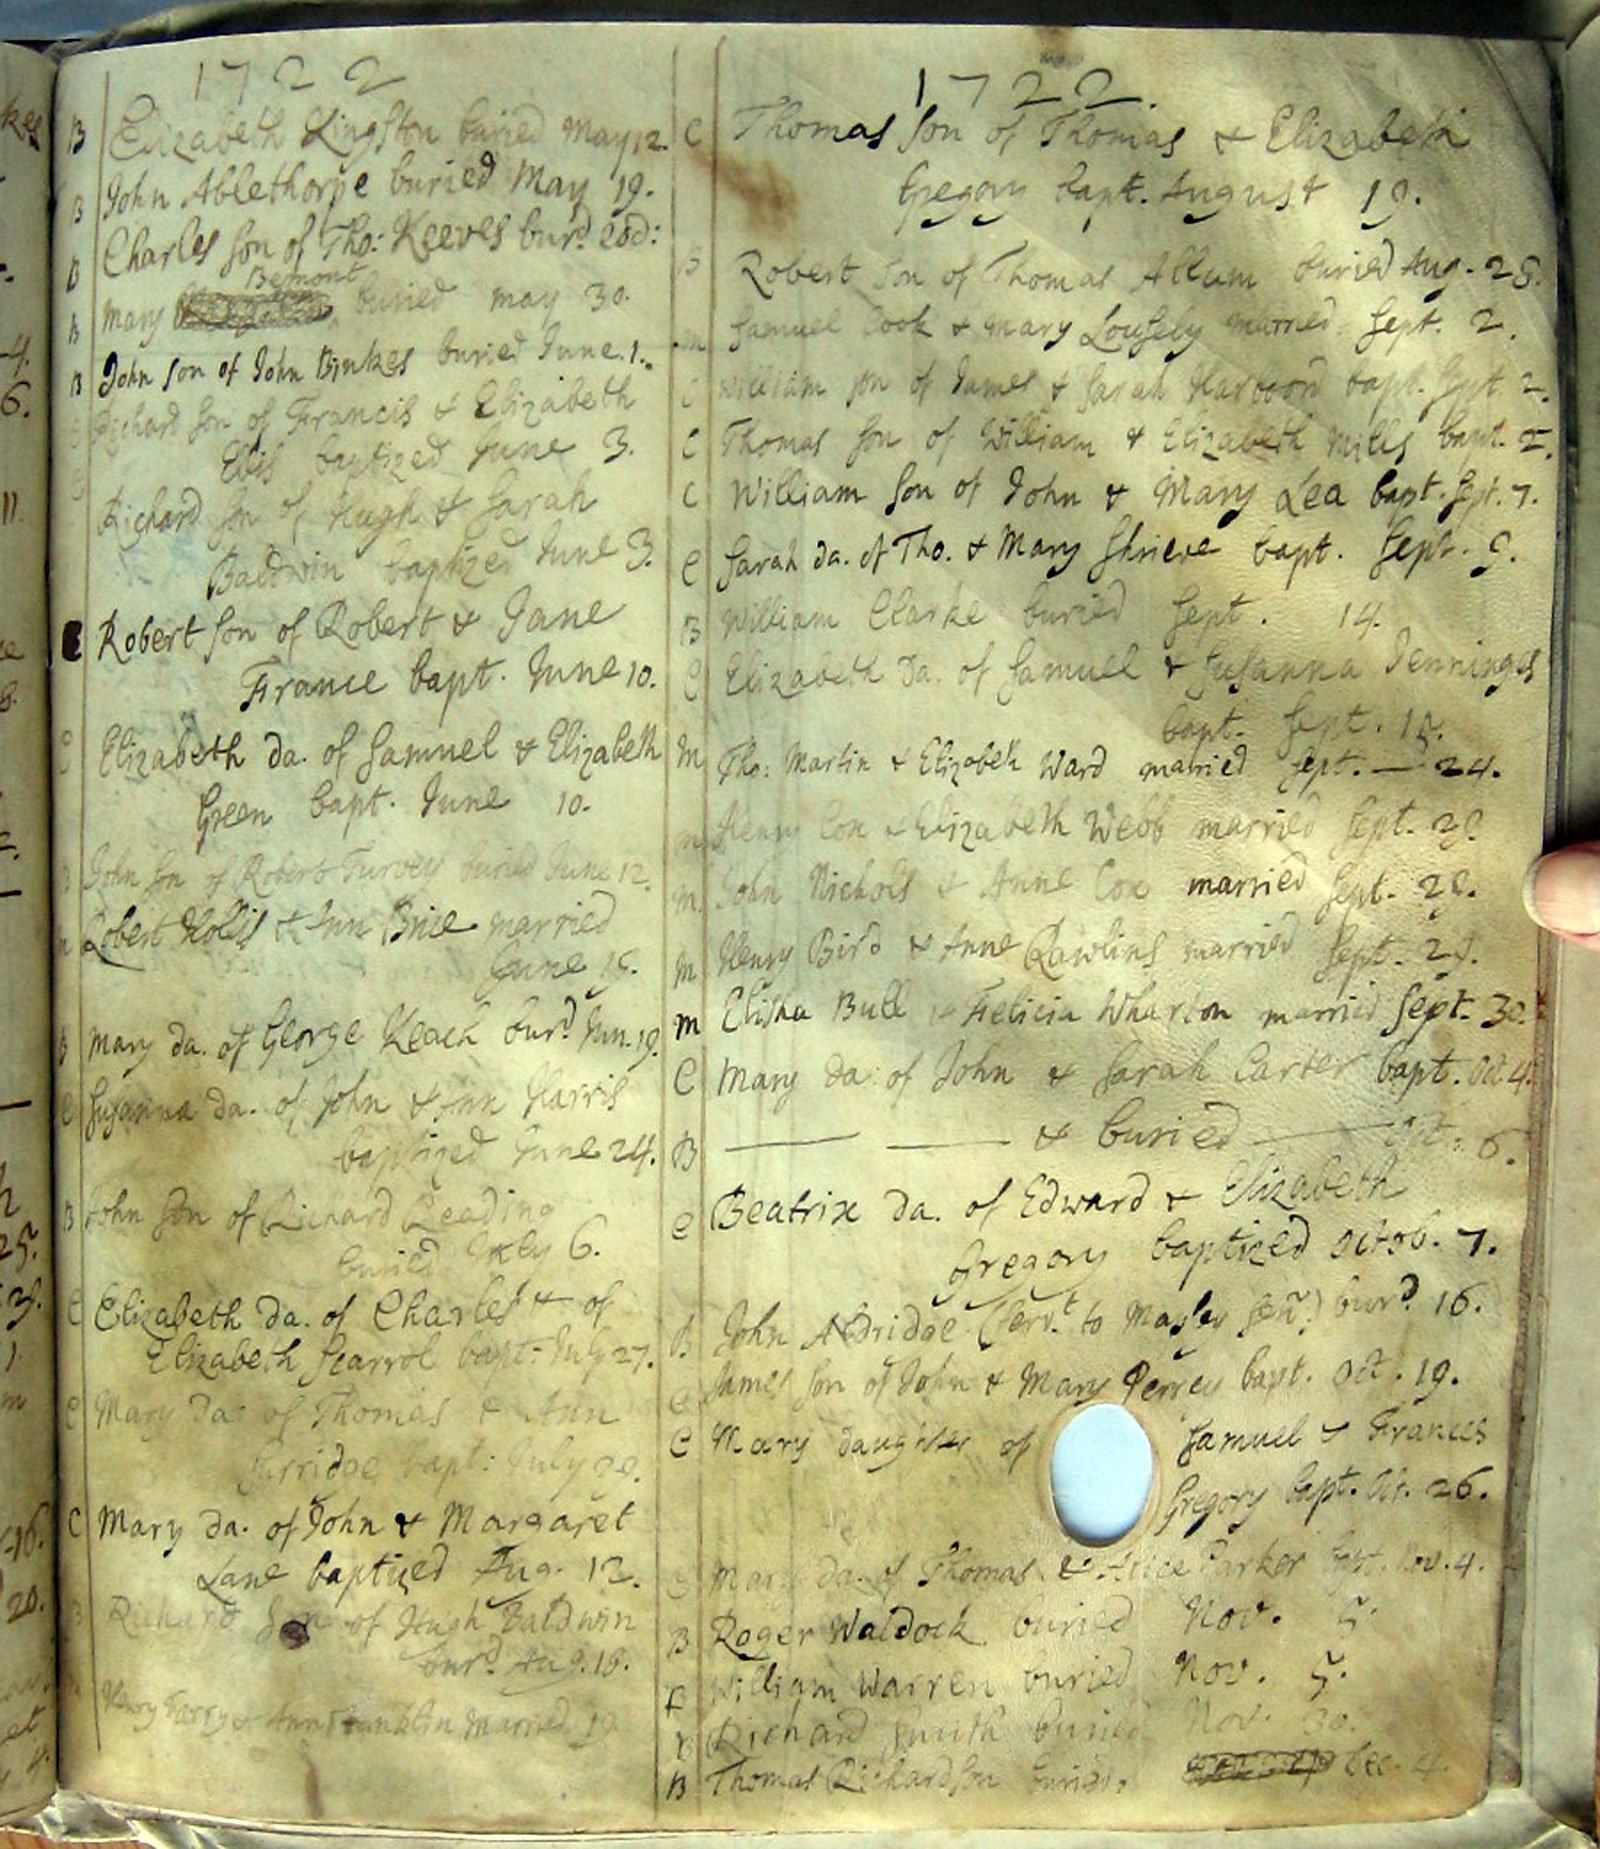 1722
B Elizabeth Kingston buried May 12.
B John Ablethorpe buried May 19.
B Charles son of Tho: Keeves burd. eod:
Bemont
B Mary buried may 30.
B John son of John Binkes buried June. 1.
Richard son of Francis & Elizabeth
Ellis baptized June 3.
Richard son of Hugh & Sarah
Baldwin baptized June 3.
C Robert son of Robert & Jane
France bapt. June 10.
C Elizabeth da. of Samuel & Elizabeth
Green bapt. June 10.
John son of Robert Turvey buried June 12.
Robert Hollis & Ann Brice married
June
B Mary da. of George Keach burd. Jun. 19.
C Susanna da. of John & Ann Harris
baptized June 24.
B John son of Richard Reading
buried July 6.
C Elizabeth da. of Charles & of
Elizabeth Scarrol bapt: July 27.
C Mary da: of Thomas & Ann
bapt: July
C Mary da. of John & Margaret
Lane baptized Aug. 12.
B Richard son of Hugh Baldwin
burd. Aug.
Henry & Ann Franklin Married
1722.
C Thomas son of Thomas & Elizabeth
Gregory bapt. August 19.
B Robert son of Thomas Allum buried Aug. 28.
m Samuel Cook & Mary Lousely married Sept. 2.
C William son of James & Sarah Harwood bapt. Sept. 2.
C Thomas son of William & Elizabeth Mills bapt. 2.
C William son of John & Mary Lea bapt. Sept. 7.
C Sarah da. of Tho. & Mary Shrieve bapt. Sept. 9.
B William Clarke buried Sept. 14.
C Elizabeth da. of Samuel & Susanna Jenninges
bapt. Sept.
M Tho: Martin & Elizabeth Ward married Sept. — 24.
m Henry Cox & Elizabeth Webb married Sept.
m John Nichols & Anne Cox married Sept.
m Henry Bird & Anne Rawlins married Sept.
m Elisha Bull & Felicia Wharton married Sept. 30.
C Mary da: of John & Sarah Carter bapt. Oct. 4.
B — — & buried — Oct. 6.
C Beatrix da. of Edward & Elizabeth
Gregory baptized Octob. 7.
B John Aldridge (servt. to Master Senr.) burd. 16.
C James son of John & Mary Perrey bapt. Oct. 19.
C Mary daughter of Samuel & Frances
Gregory bapt. Oct. 26.
C Mary da. of Thomas & Alice Parker bapt. Nov. 4.
B Roger Waldock buried Nov. 5.
B William Warren buried Nov. 5.
B Richard Smith buried Nov. 30.
B Thomas Richardson buried. Dec. 4.